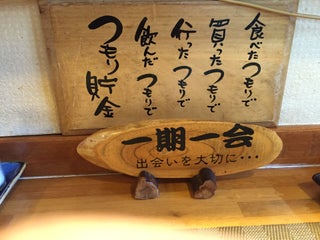 食べたつもりで
買ったつもりで
行ったつもりで
飲んだつもりで
つもり貯金
一期一会
出会いを大切に・・・